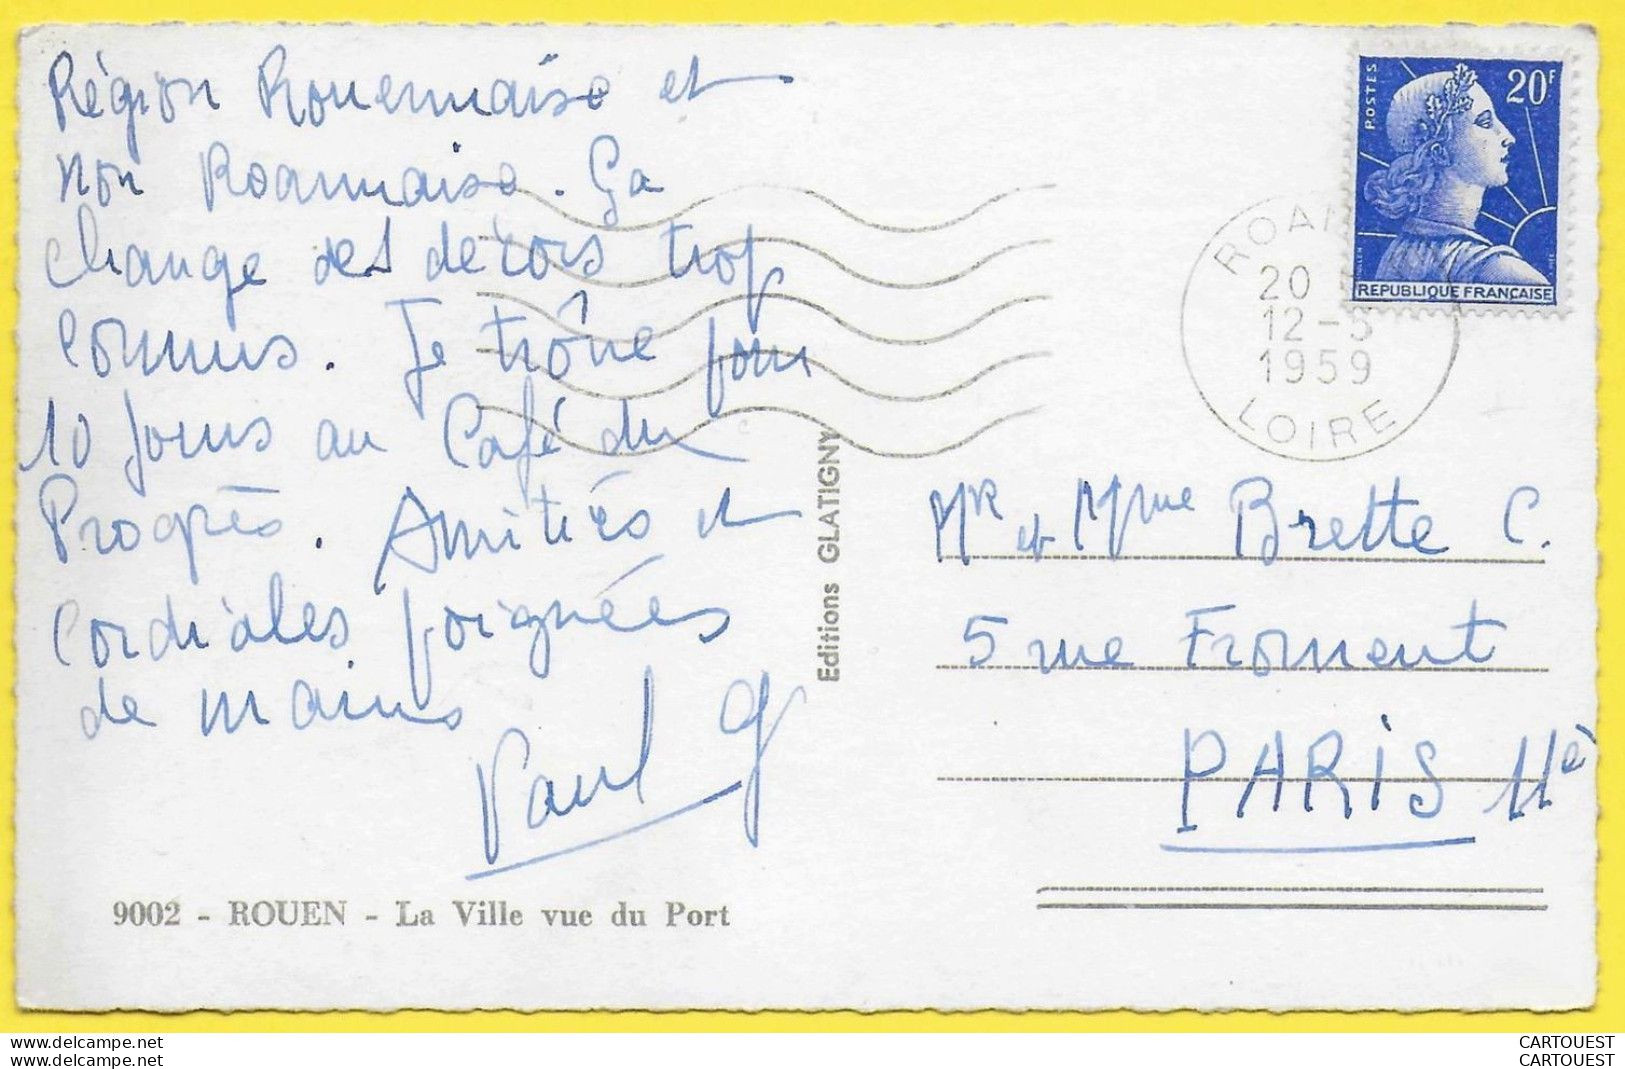 Région Rouennaise et
non Roannaise. Ça
change des décors trop
connus. Je trône pour
10 jours au Café du
Progrès. Amitiés et
cordiales poignées
de mains
Paul G
9002 - ROUEN - La Ville vue du Port
Editions GLATIGNY
POSTES
20F
REPUBLIQUE FRANÇAISE
ROAN
20
12-5
1959
LOIRE
Mr et Mme Brette C.
5 rue Froment
PARIS 11è
cartouest.delcampe.net
cartouest.delcampe.net
CARTOUEST
CARTOUEST